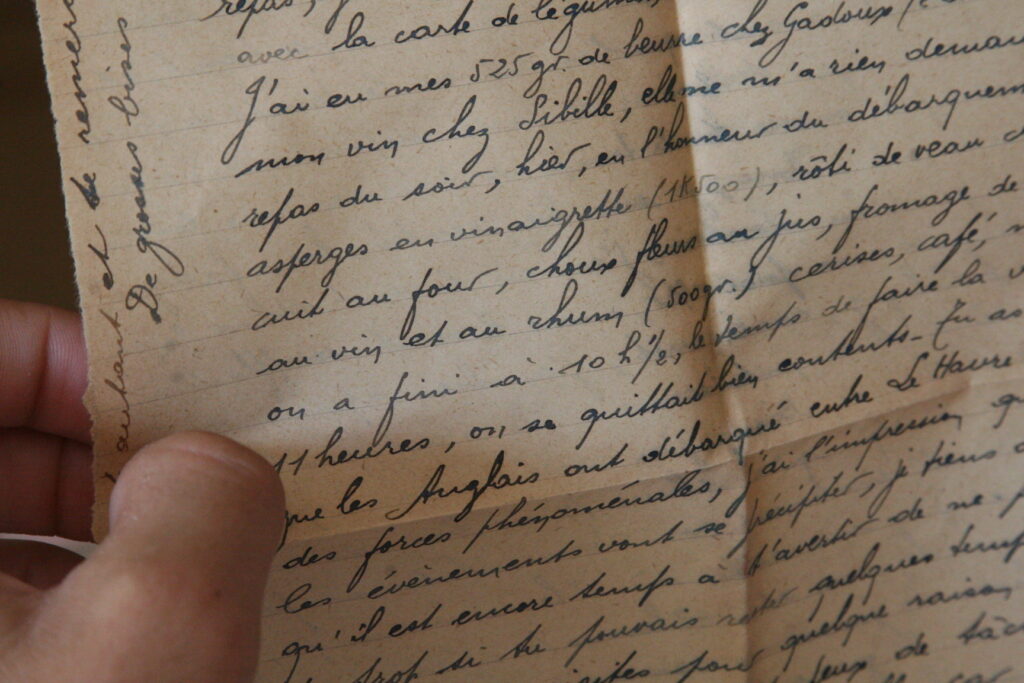 repas,
avec la carte de légumes
J'ai eu mes 525 gr. de beurre chez Gadoux
mon vin chez Sibille, elle me m'a rien deman
repas du soir, hier, en l'honneur du débarquem
asperges en vinaigrette (1K500), rôti de veau
cuit au four, choux fleurs au jus, fromage de
au vin et au rhum (500gr.) cerises, café,
on a fini à 10 h 1/2, le temps de faire la v
11 heures, on se quittait bien contents - Tu as
que les Anglais ont débarqué entre Le Havre
des forces phénoménales, j'ai l'impression qu
les évènements vont se précipiter, je tiens
qu'il est encore temps à t'avertir de ne p
trop si tu pouvais rester quelques temps
pour quelque raison
de tâc
car
autant et te remerc
De grosses bises